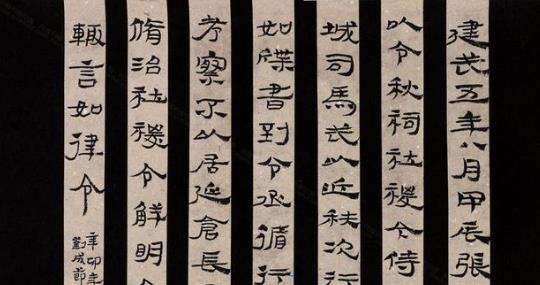 建武五年八月甲辰張
以令秋祠社稷今侍
城司馬武以近秩次行
如牒書到令丞循行
考察不以居延倉長
脩治社稷令鮮明令
輒言如律令
辛卯年
劉成節